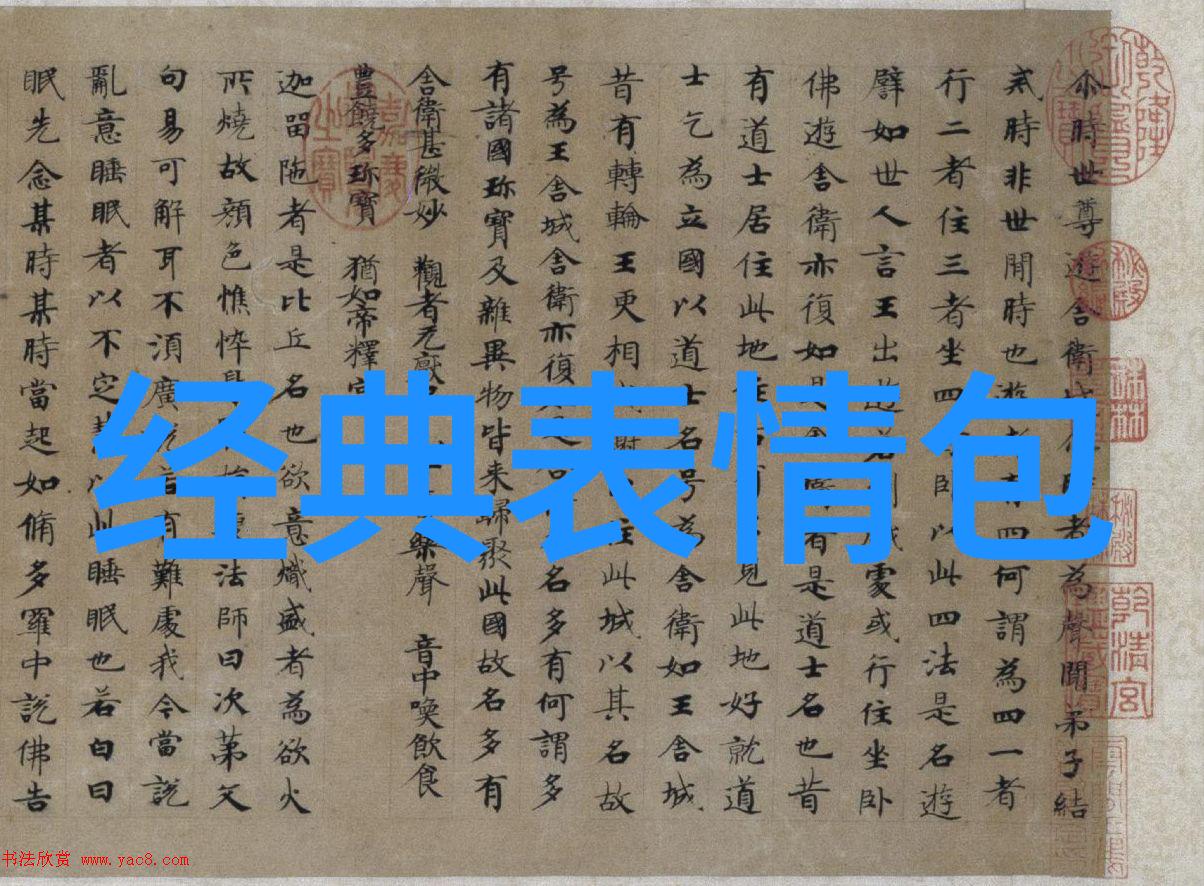 尒時世尊遊舍衛者為聲聞弟子結
戒時非世間時也遊者有四何謂為四一者
行二者住三者坐四卧以此四法是名遊
譬如世人言王出遊若處或行住坐卧
佛遊舍衛亦復如是者是道士名也昔
有道士居住此地見此地好就道
士乞為立國以道士名号為舍衛如王舍城
昔有轉輪王更相住此城以其名故
号為王舍城舍衛亦復名多有何謂多
有諸國珎寶及雜異物皆来歸聚此國故名多有
舍衛甚微妙 觀者无厭樂聲 音中喚飲食
豊饒多珎寶 猶如帝釋宮
迦留陁者是比丘名也欲意熾盛者為欲火
所燒故顔色憔悴法師曰次第文
句易可解耳不湏廣有難處我今當説
亂意睡眠者以不定以此睡眠也若白曰
眠先念某時某時當起如脩多羅中説佛告
经典表情包
乾清宮
书法欣赏 www.yac8.com